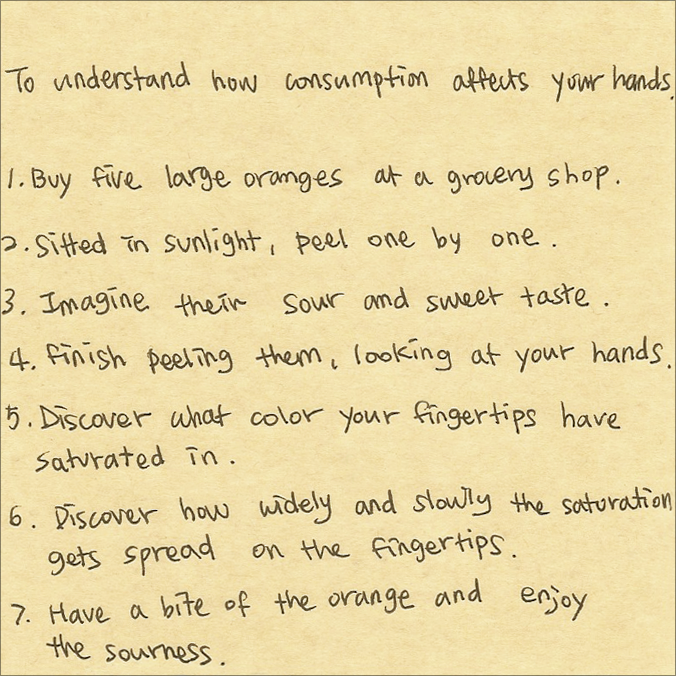 To understand how consumption affects your hands.
1. Buy five large oranges at a grocery shop.
2. Sitted in sunlight, peel one by one.
3. Imagine their sour and sweet taste.
4. Finish peeling them, looking at your hands.
5. Discover what color your fingertips have
saturated in.
6. Discover how widely and slowly the saturation
gets spread on the fingertips.
7. Have a bite of the orange and enjoy
the sourness.